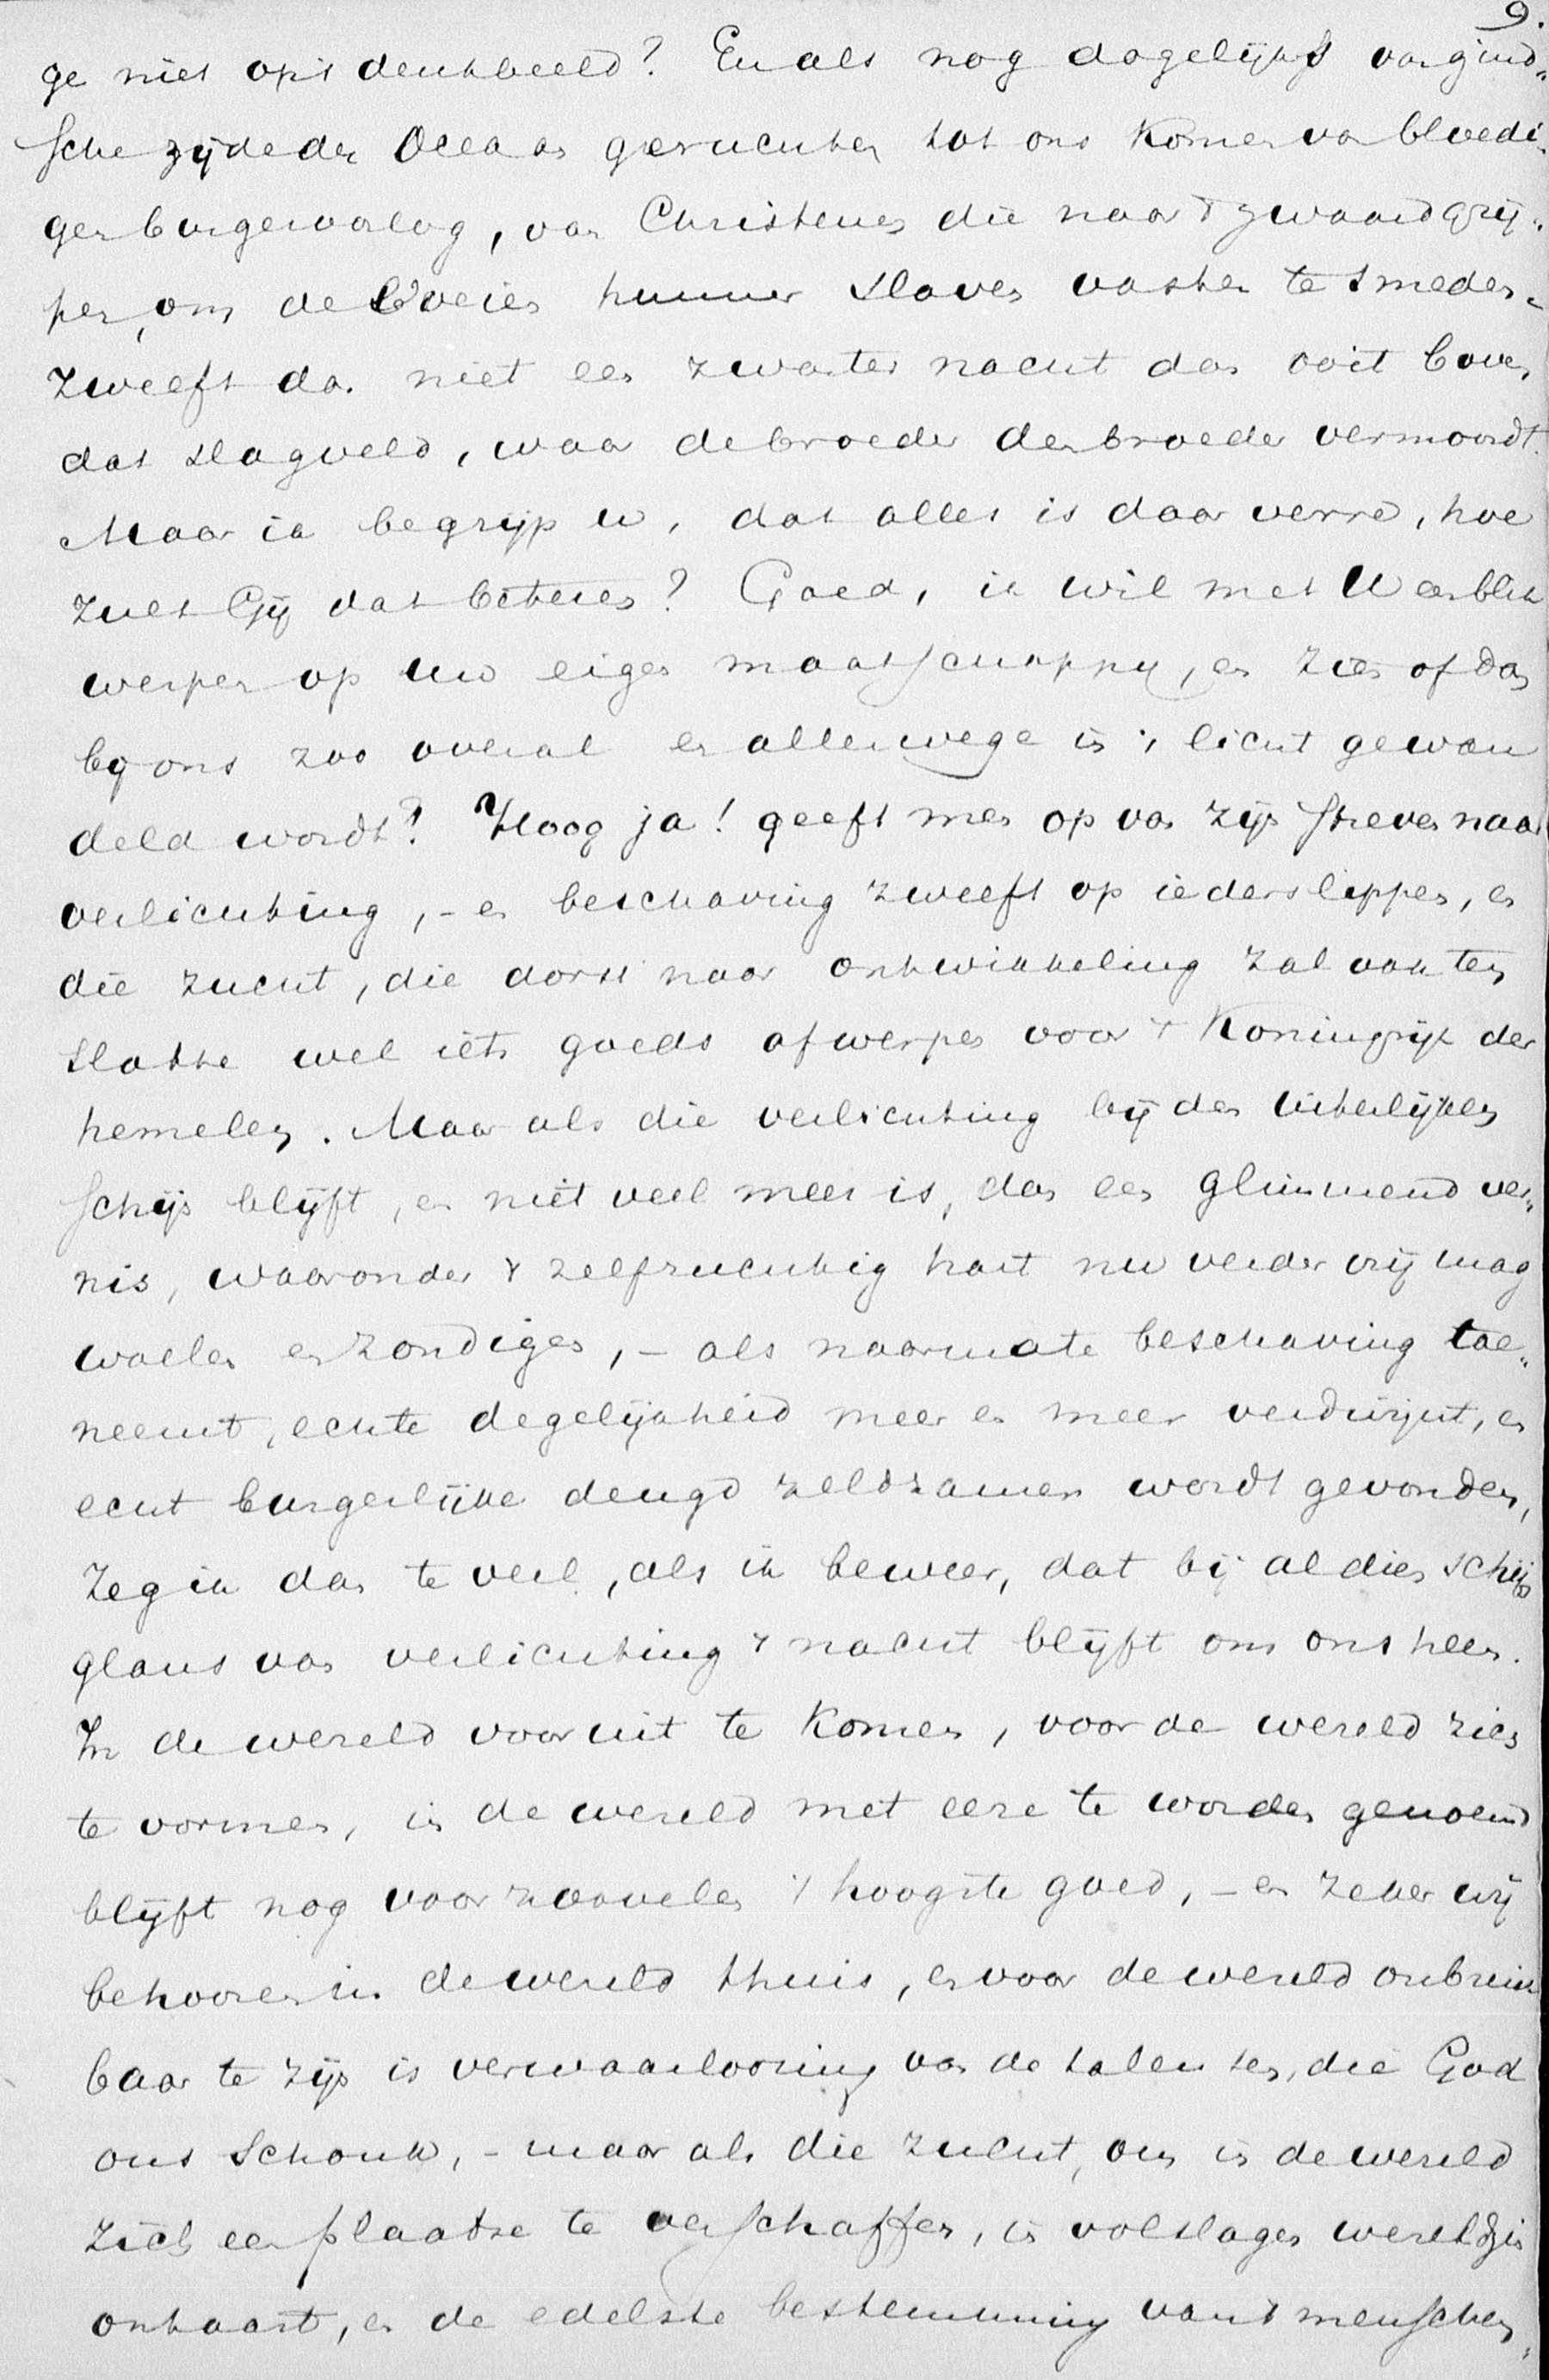 9.
ge niet op 't denkbeeld? En als nog dagelijks van gind„
sche zijde der Oceaan geruchten tot ons komen van bloedi„
gen burgeroorlog, van Christenen die naar 't zwaard grij„
pen, om de boeien hunner slaven vaster te smeden„
zweeft dan niet een zwarter nacht dan ooit boven
dat slagveld, waar de broeder den broeder vermoordt.
Maar ik begrijp u, dat alles is daar verre, hoe
zult Gij dat beteren? Goed, ik wil met U een blik
werpen op uw eigen maatschappij, en zien of dan
bij ons zoo overal en allerwege in 't licht gewan
deld wordt? Hoog ja! geeft men op van zijn streven naar
verlichting, – en beschaving zweeft op ieders lippen, en
die zucht, die dorst naar ontwikkeling zal ook ten
slotte wel iets goeds afwerpen voor 't Koningrijk der
hemelen. Maar als die verlichting bij den uiterlijken
schijn blijft, en niet veel meer is, dan een glimmend ver„
nis, waaronder 't zelfzuchtig hart nu verder vrij mag
woelen en zondigen, – als naarmate beschaving toe„
neemt, echte degelijkheid meer en meer verdwijnt, en
echt burgerlijke deugd zeldzamer wordt gevonden,
zeg ik dan te veel, als ik beweer, dat bij al dien schijn
glans van verlichting 't nacht blijft om ons heen.
In de wereld vooruit te komen, voor de wereld zich
te vormen, in de wereld met eere te worden genoemd
blijft nog voor zoovelen 't hoogste goed, – en zeker wij
behooren in de wereld thuis, en voor de wereld onbruik
baar te zijn is verwaarloozing van de talenten, die God
ons schonk, – maar als die zucht, om in de wereld
zich een plaatse te verschaffen, in volslagen wereldzin
ontaart, en de edelste bestemming van 't menschen„